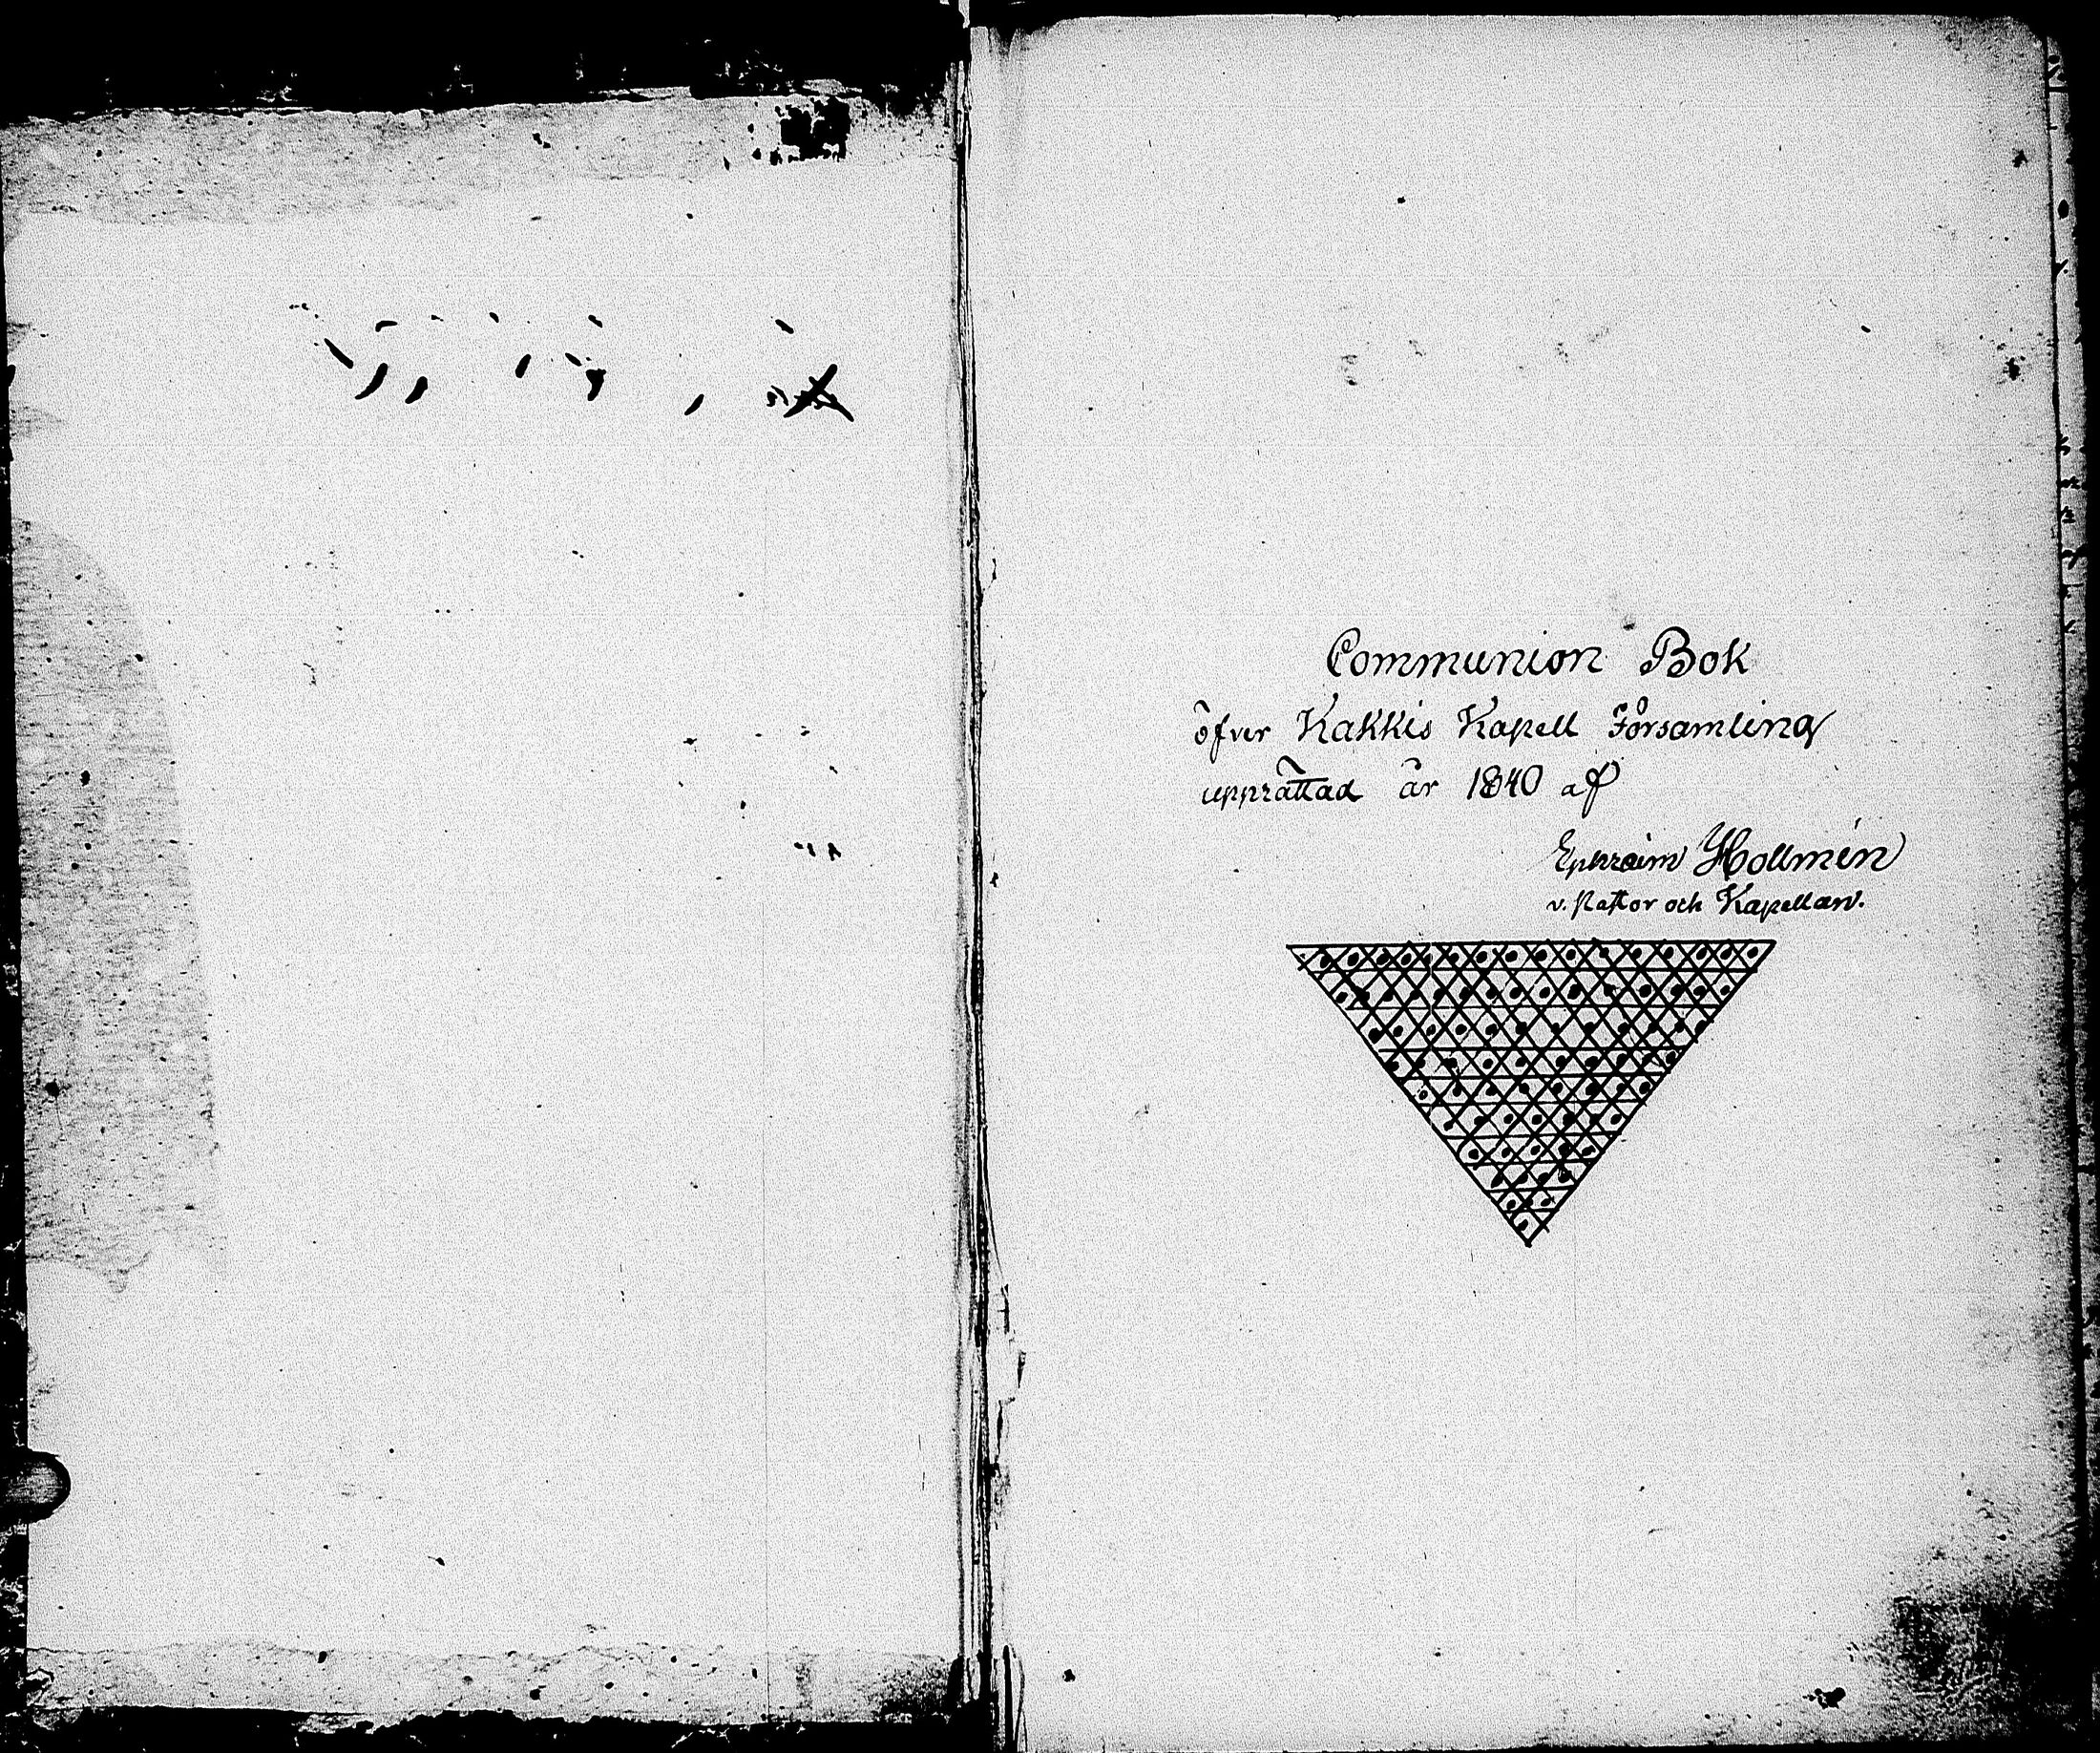 Communion Bok
öfver Kakkis Kapell Församling
upprättad år 1840 af
Ephraim Hollmén
v. Pastor och Kapellan.